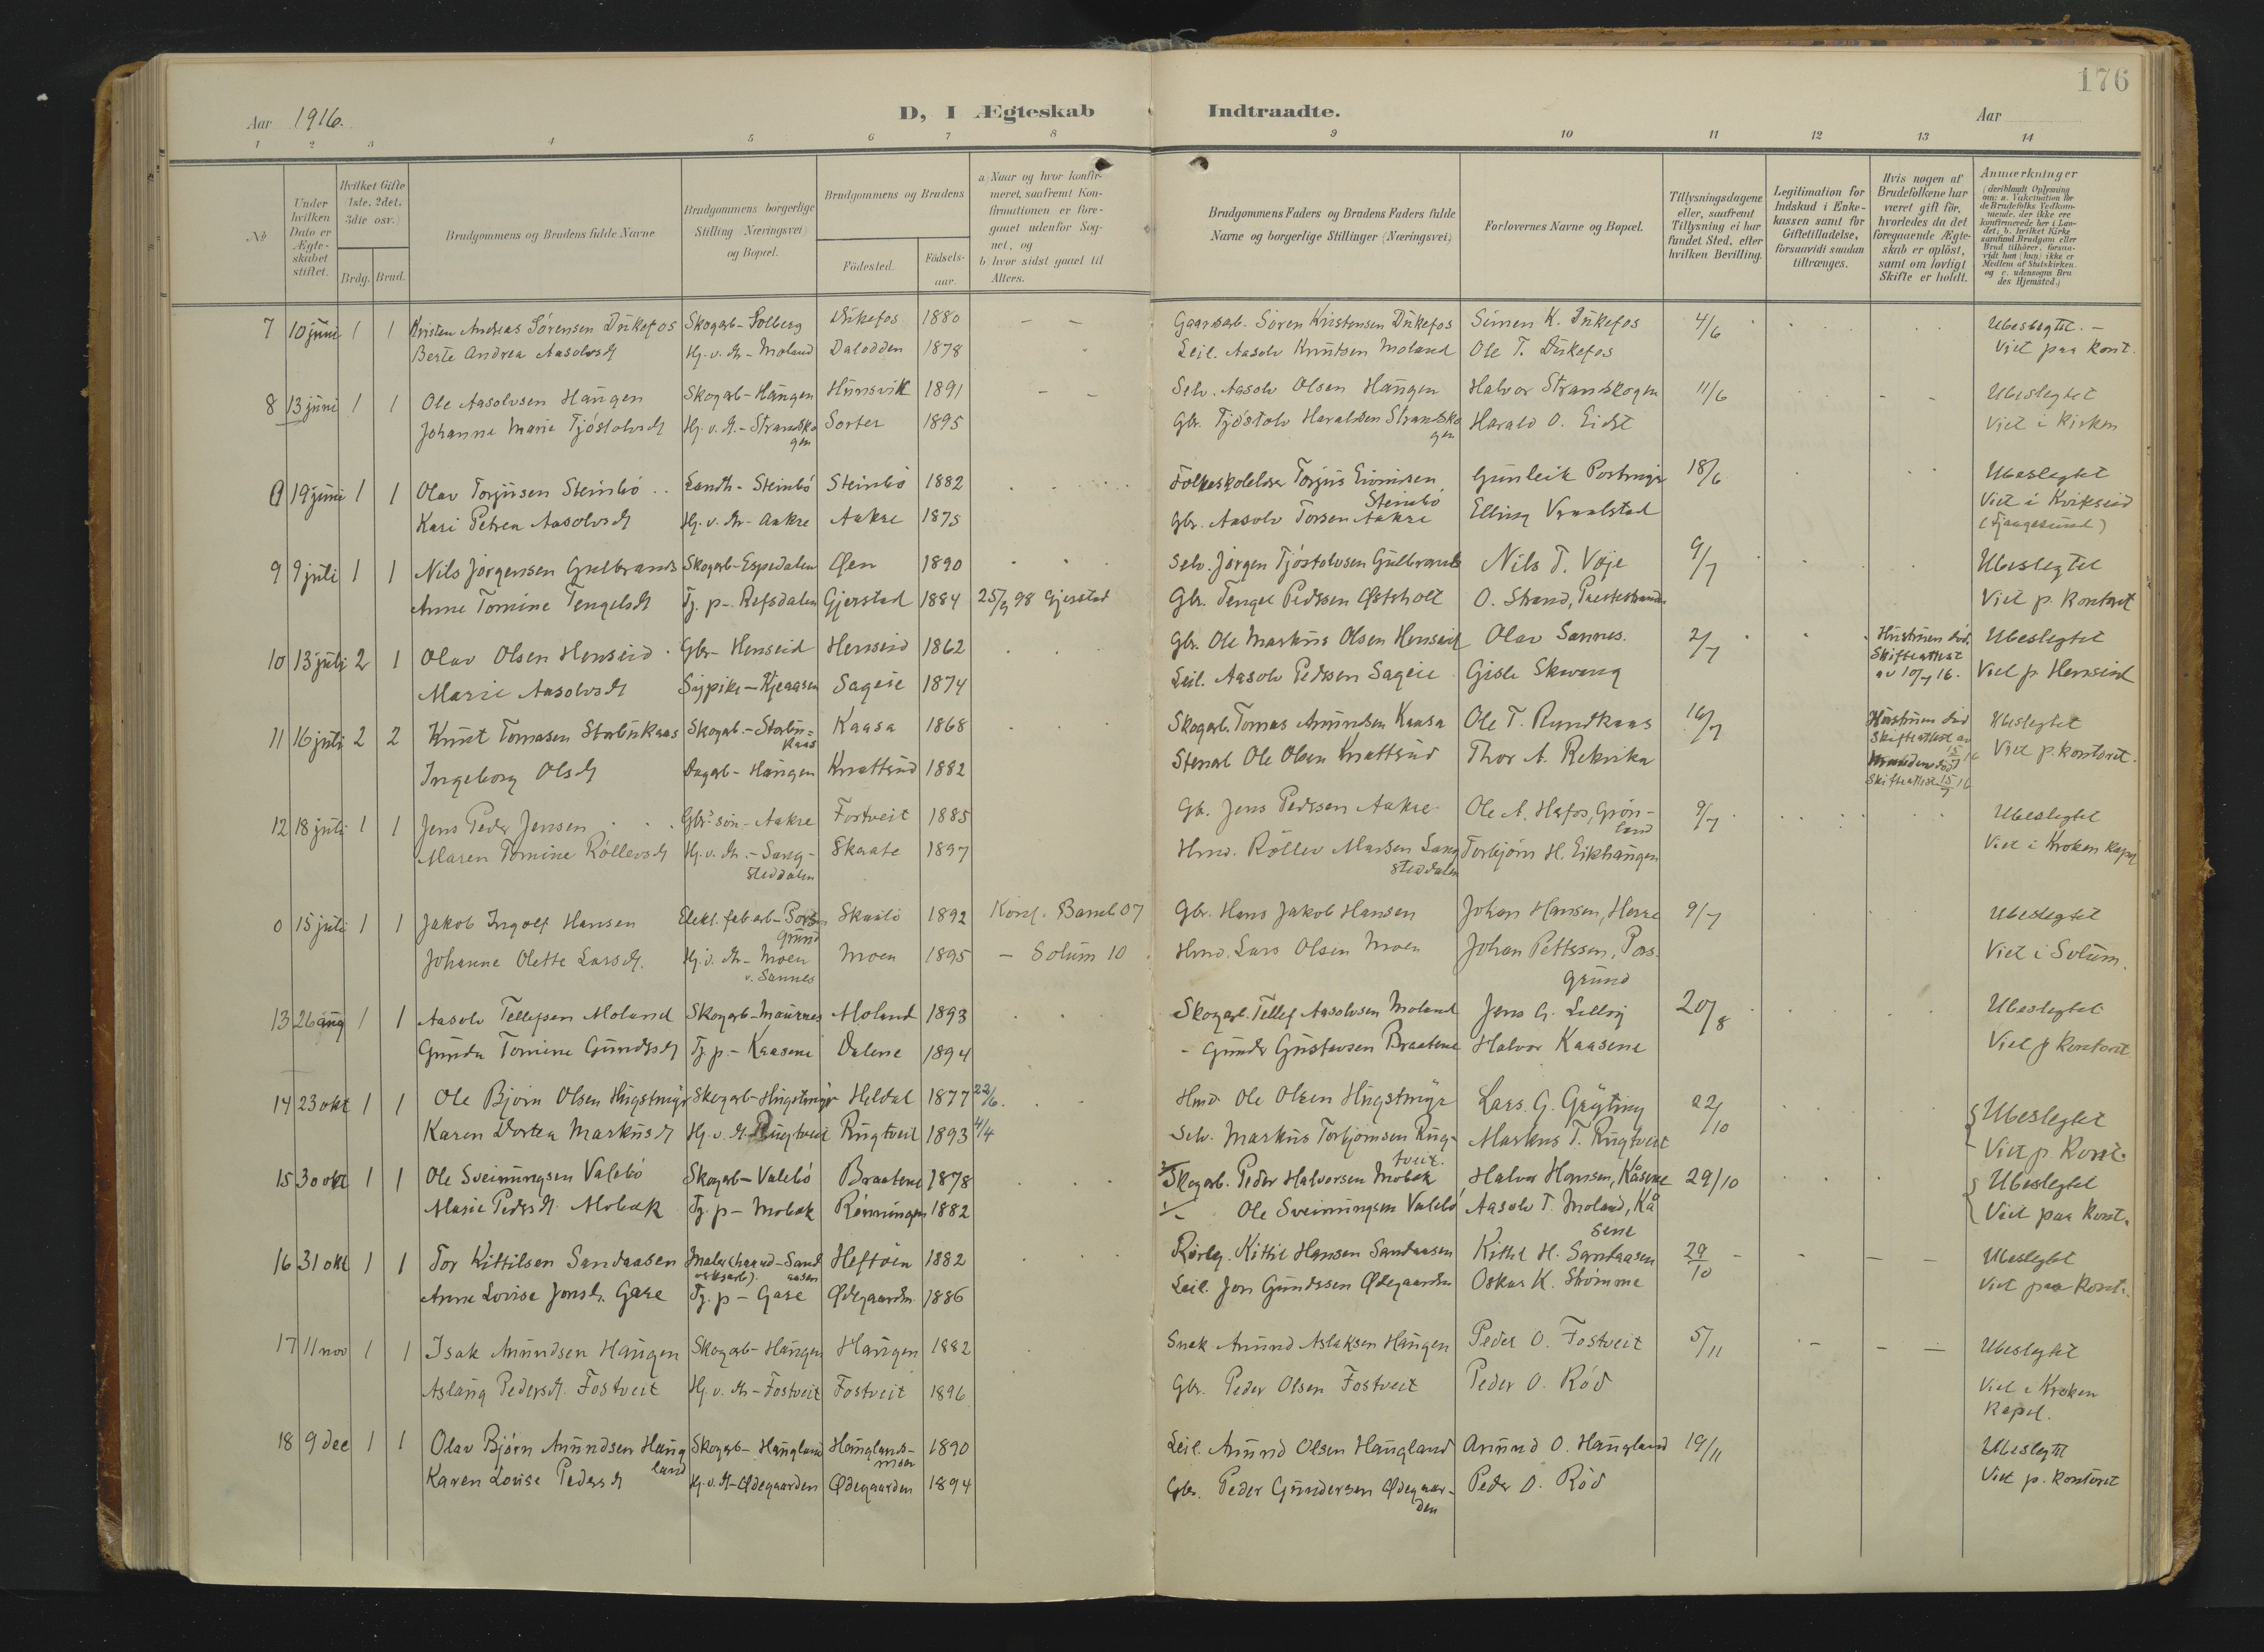 176
Aar 1916.
D, I Ægteskab Indtraadte.
Aar
1 2 3 4 5 6 7 8 9 10 11 12 13 14
No
Under hvilken Dato er Ægteskabet stiftet.
Hvilket Gifte (1ste, 2det, 3die osv.)
Brdg. Brud.
Brudgommens og Brudens fulde Navne
Brudgommens borgerlige Stilling (Næringsvei) og Bopæl.
Brudgommens og Brudens
Fødested.
Fødselsaar.
a) Naar og hvor konfirmeret, saafremt Konfirmationen er foregaaet udenfor Sognet, og
b. hvor sidst gaaet til Alters.
Brudgommens Faders og Brudens Faders fulde Navne og borgerlige Stillinger (Næringsvei)
Forlovernes Navne og Bopæl.
Tillysningsdagene eller, saafremt Tillysning ei har fundet Sted, efter hvilken Bevilling.
Legitimation for Indskud i Enkekassen samt for Giftetilladelse, forsaavidt saadan tiltrænges.
Hvis nogen af Brudefolkene har været gift før, hvorledes da det foregaaende Ægteskab er opløst, samt om lovligt Skifte er holdt.
Anmærkninger (deriblandt Oplysning om: a. Vakcination for de Brudefolks Vedkommende, der ikke ere konfirmerede her i Landet; b. hvilket Kirkesamfund Brudgom eller Brud tilhører, forsaavidt han (hun) ikke er Medlem af Statskirken. og c. udensogns Brudes Hjemsted.)
7 10 juni 1 1 Kristen Andreas Sørensen Dükefos Skogarb - Solberg Dükefos 1880 Gaardarb. Søren Kristensen Dükefos Simen K. Dükefos 4/6 Ubeslegtet. -
Berte Andrea Aasolvsd Hj. v. M - Moland Dalodden 1878 Leil. Aasolv Knutsen Moland Ole T. Dükefos Viet paa kont.
8 13 juni 1 1 Ole Aasolvsen Haugen Skogarb - Haugen Hünsvik 1891 Selv. Aasolv Olsen Haugen Halvor Strandskogen 11/6 Ubeslegtet
Johanne Marie Tjøstolvsd Hj. v. M. - Strandskogen Sorter 1895 Gbr. Tjøstolv Haraldsen Strandskogen Harald O. Eidst Viet i kirken
0 19 juni 1 1 Olav Torjusen Steinbö Landh - Steinbö Steinbö 1882 Folkeskolelærer Torjus Eivindsen Steinbö Gunleik Postmyr 18/6 Ubeslegtet
Kari Petrea Aasolvsd Hj. v. M - Aakre Aakre 1875 Gbr. Aasolv Torsen Aakre Elling Vraalstad Viet i Kviteseid
9 9 juli 1 1 Nils Jørgensen Gulbrands Skogarb - Espedalen Øen 1890 Selv. Jørgen Tjøstolvsen Gulbrands Nils T. Voje 9/7 Ubeslegtet
Anne Tomine Tengelsd Tj. p - Refsdalen Gjerstad 1884 25/9 98 Gjerstad Gbr. Tengel Pedersen Østsholt O. Strand, Prestestranda Viet p. kontoret
10 13 juli 2 1 Olav Olsen Henseid Gbr - Henseid Henseid 1862 Gbr. Ole Markus Olsen Henseid Olav Sannes. 2/7 Hustruen död. Skifteattest av 10/7 16. Ubeslegtet
Marie Aasolvsd Sypike - Kjeaasen Sageie 1874 Leil. Aasolv Pedersen Sageie Gisle Skweng Viet p Henseid
11 16 juli 2 2 Knut Tomasen Storbukaas Skogarb - Storbukaas Kaasa 1868 Skogarb. Tomas Amundsen Kaasa Ole T. Rundkaas 16/7 Hustruen död Skifteattest av 15/7 16 Ubeslegtet
Ingeborg Olsd Dagarb - Haugen Knattsud 1882 Stenarb Ole Olsen Knattsud Thor A. Rekvika Manden död Skifteattest 15/7 16 Viet p. kontoret.
12 18 juli 1 1 Jens Peder Jensen Gbr's sön - Aakre Fostveit 1885 Gb. Jens Pedersen Aakre Ole A. Hafos, Grönland 9/7 Ubeslegtet
Maren Tomine Röllevsd Hj. v. M. - Sangsteddalen Skaate 1897 Hmd. Röllev Madsen Sangsteddalen Torbjörn H. Eikhaugen Viet i Kroken kapel
0 15 juli 1 1 Jakob Ingolf Hansen Elekt. fabarb - Porsgrund Skaatö 1892 Konf. Bamle 07 Gbr. Hans Jakob Hansen Johan Hansen, Herre 9/7 Ubeslegtet
Johanne Olette Larsd. Hj. v. M - Moen v. Sannes Moen 1895 - Solum 10 Hmd. Lars Olsen Moen Johan Pettersen, Porsgrund Viet i Solum.
13 26 aug 1 1 Aasolv Tellefsen Moland Skogarb - Maurnes Moland 1893 Skogarb. Tellef Aasolvsen Moland Jens G. Lelling 20/8 Ubeslegtet
Gunda Tomine Gundersd Tj. p - Kaasene Dalene 1894 - Gunder Gustavsen Braatene Halvor Kaasene Viet p kontoret
14 23 okt 1 1 Ole Björn Olsen Hügstmyr Skogarb - Hügstmyr Heldal 1877 22/6. Hmd Ole Olsen Hügstmyr Lars. G. Grÿting 22/10 Ubeslegtet
Karen Dortea Markusd Hj. v. M. Rugtveit Rugtveit 1893 4/4 Selv. Markus Torbjørnsen Rugtveit. Markus T. Rugtveit Viet p. Kont.
15 30 okt 1 1 Ole Sveinungsen Valebö Skogarb - Valebö Braatene 1878 2/ Skogarb. Peder Halvorsen Mobæk Halvor Hansen, Kåsene 29/10 Ubeslegtet
Marie Pedersd. Mobæk Tj. p - Mobæk Rønningen 1882 1/ - Ole Sveinungsen Valebö Aasolv T. Moland, Kåsene Viet paa kont.
16 31 okt 1 1 Tor Kittilsen Sandaasen Maler - Sandaasen Heftöen 1882 Rørlg. Kittil Hansen Sandaasen Kittil H. Sandaasen 29/10 Ubeslegtet
Anne Lovise Jonsd. Gase Tj. p - Gase Ødegaarden 1886 Leil. Jon Gundersen Ødegaarden Oskar K. Strømme Viet paa kont.
17 11 nov 1 1 Isak Amundsen Haugen Skogarb - Haugen Haugen 1882 Snek Amund Aslaksen Haugen Peder O. Fostveit 5/11 Ubeslegtet
Aslaug Pedersd. Fostveit Hj. v. M - Fostveit Fostveit 1896 Gbr. Peder Olsen Fostveit Peder O. Röd Viet i Kroken Kapel.
18 9 dec 1 1 Olav Björn Amundsen Haugland Skogarb - Haugland Hauglandsmoen 1890 Leil. Amund Olsen Haugland Amund O. Haugland 19/11 Ubeslegtet
Karen Lovise Pedersd Hj. v. M - Ødegaarden Ødegaarden 1894 Gbr. Peder Gundersen Ødegaarden Peder O. Röd Viet p. kontoret